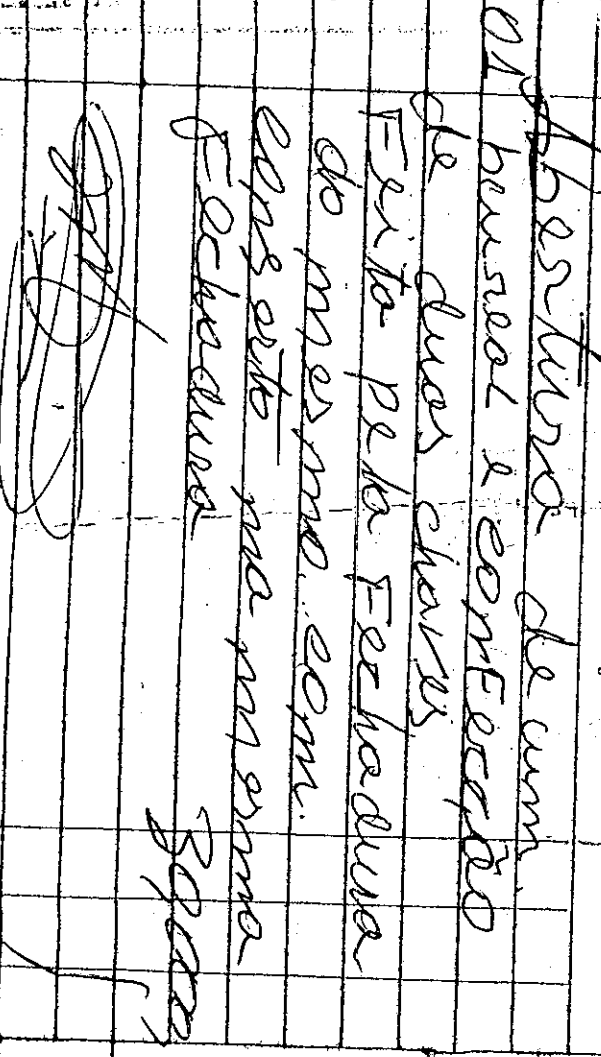 01 Abertura de um
bureal e confecção
de duas chaves
Feita pela Fechadura
do mesmo. com.
conserto na mesma
Fechadura